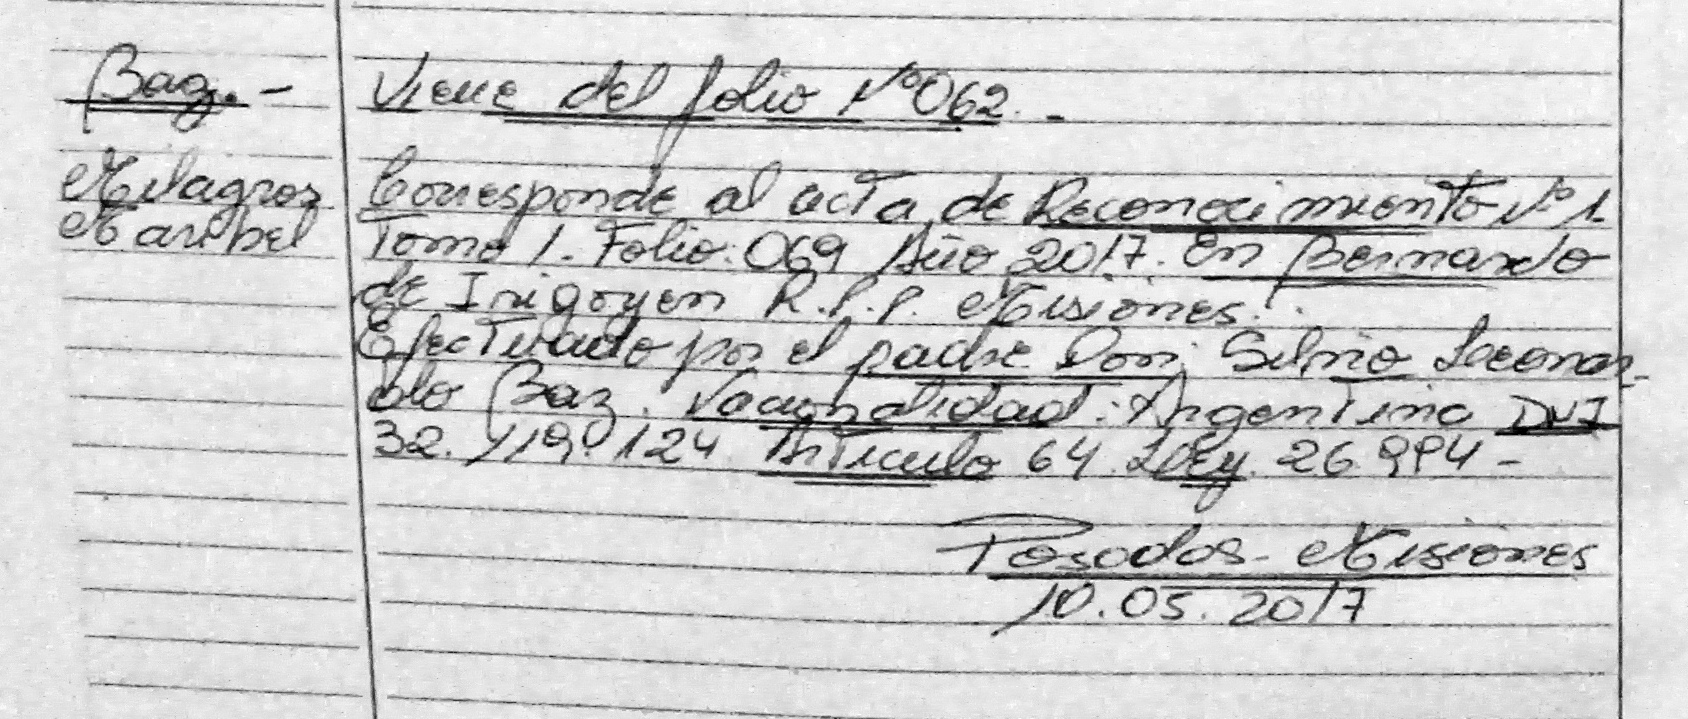 Baz. -
Milagros
Maribel
Viene del folio Nº 062. -
Corresponde al acta de Reconocimiento Nº 1.
Tomo 1. Folio: 069 Año 2017. En Bernardo
de Irigoyen R.P.P. Misiones.
Efectivado por el padre Don: Silvio Leonar-
do Baz. Nacionalidad: Argentino DNI
32.119.124 Articulo 64 Ley. 26.994 -
Posadas - Misiones
10.05.2017